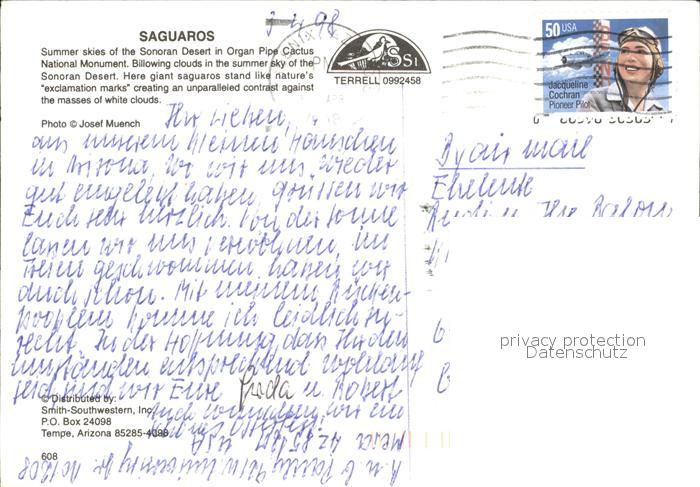 3 4 98
SAGUAROS
Summer skies of the Sonoran Desert in Organ Pipe Cactus
National Monument. Billowing clouds in the summer sky of the
Sonoran Desert. Here giant saguaros stand like nature's
"exclamation marks" creating an unparalleled contrast against
the masses of white clouds.
Photo © Josef Muench
SSI
TERRELL 0992458
50 USA
Jacqueline
Cochran
Pioneer Pilot
Ihr Lieben,
aus unserem kleinen Häuschen
in Arizona, wo wir uns wieder
gut eingelebt haben, grüssen wir
Euch sehr herzlich. Von der Sonne
lassen wir uns verwöhnen, im
Freien geschwommen haben wir
auch schon. Mit meinem Rücken-
problem komme ich leidlich zu-
recht. In der Hoffnung, dass Ihr den
Umständen entsprechend wohlauf
seid sind wir Eure Frieda u. Robert
Auch wünschen wir ein
By air mail
Eheleute
© Distributed by:
Smith-Southwestern, Inc.
P.O. Box 24098
Tempe, Arizona 85285-4098
608
Mesa AZ USA
privacy protection
Datenschutz